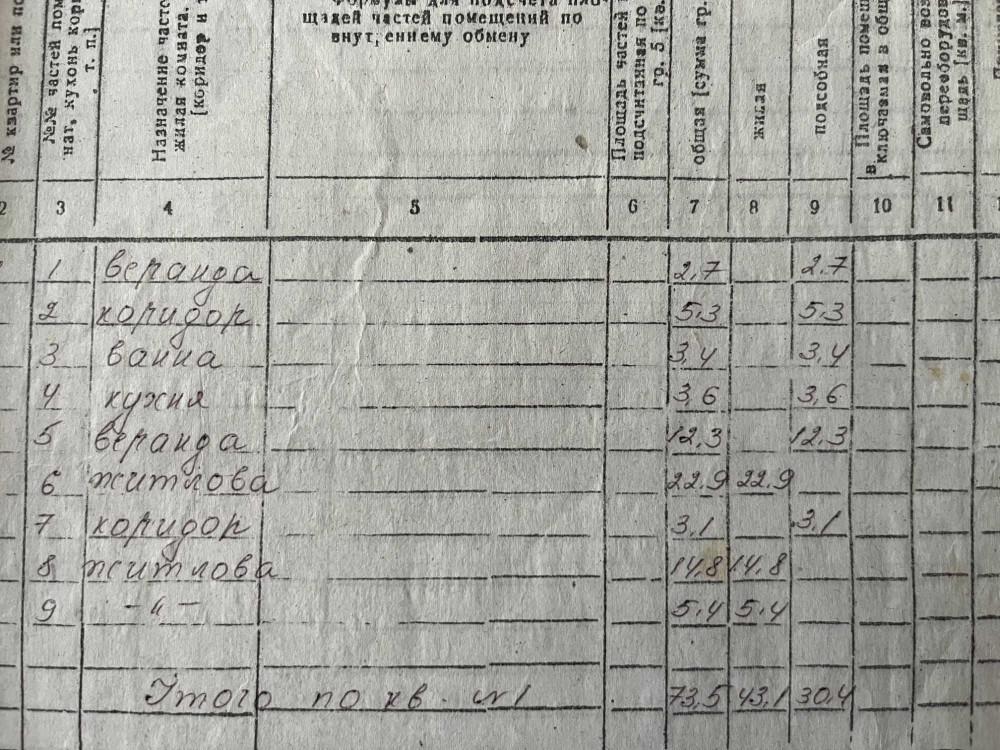 № квартир или по
№№ частей пом
нат, кухонь кори
т. п.]
Назначение часте
жилая комната.
[коридор и т
Формулы для подсчета пло-
щадей частей помещений по
внутреннему обмену
Площадь частей
подсчитанная по
гр. 5 [кв.
общая [сумма гр.
жилая
подсобная
Площадь помещ
в ключаемая в общ
Самовольно воз
переоборудов
щадь [кв. м.]
2 3 4 5 6 7 8 9 10 11 1
1 веранда 2,7 2,7
2 коридор 5,3 5,3
3 ванна 3,4 3,4
4 кухня 3,6 3,6
5 веранда 12,3 12,3
6 житлова 22,9 22,9
7 коридор 3,1 3,1
8 житлова 14,8 14,8
9 -"- 5,4 5,4
Итого по кв. №1 73,5 43,1 30,4